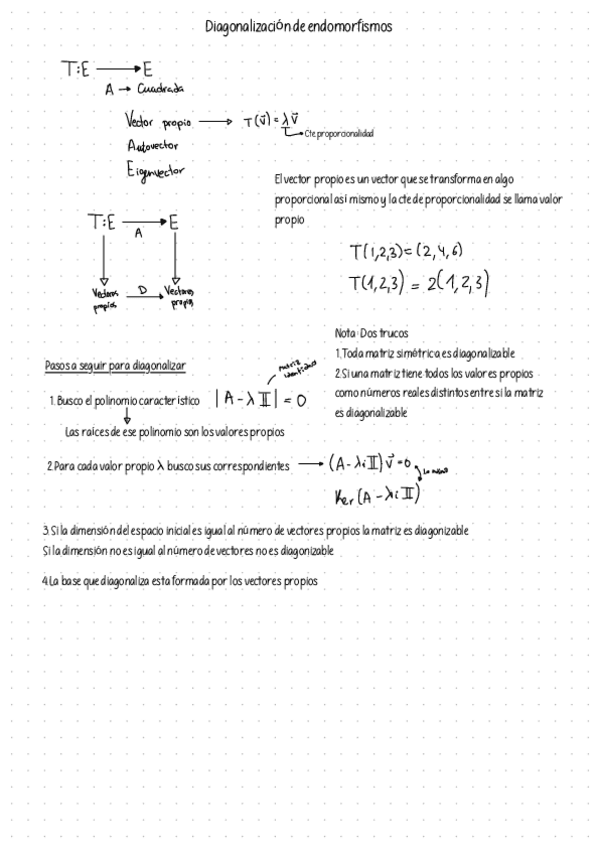 Diagonalización de endomorfismos
T:E → E
A → Cuadrada
Vector propio → T(v⃗) = λv⃗
Cte proporcionalidad
Autovector
Eigenvector
El vector propio es un vector que se transforma en algo
proporcional asi mismo y la cte de proporcionalidad se llama valor
propio
T:E → E
A
T(1,2,3)=(2,4,6)
T(1,2,3) = 2(1,2,3)
Vectores propios D → Vectores propios
Nota: Dos trucos
1.Toda matriz simétrica es diagonalizable
2.Si una matriz tiene todos los valores propios
como números reales distintos entre si la matriz
es diagonalizable
Pasos a seguir para diagonalizar
matriz identidad
1. Busco el polinomio caracteristico |A - λ𝕀| = 0
Las raíces de ese polinomio son los valores propios
2.Para cada valor propio λ busco sus correspondientes → (A - λi𝕀) v⃗ = 0
Lo mismo
Ker (A - λi𝕀)
3.Si la dimensión del espacio inicial es igual al número de vectores propios la matriz es diagonizable
Si la dimensión no es igual al número de vectores no es diagonizable
4.La base que diagonaliza esta formada por los vectores propios